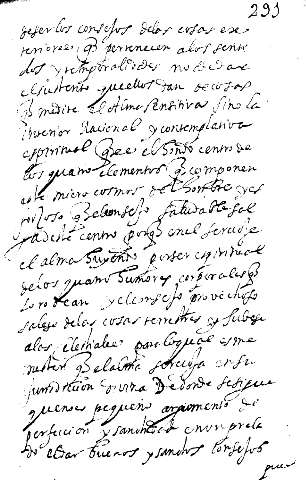 293
de ser los consejos de las cosas exe
teriores q pertenecen a los senti
dos y temporalidades no de dar
el sustento quellos dan de cosas
q medite el Alma sensitiva sino la
interior Racional y contemplativa
espiritual que es el hondo centro de
los quatro elementos q componen
este micro cosmos del hombre y es
forçoso q el consejo saludable sal
ga deste centro porq en el se recoje
el alma huyendo por ser espiritual
de los quatro humores corporales q
lo rodean y el consejo provechoso
sale de las cosas terrestres y sube
a las celestiales por lo qual es me
nester q el alma se recoja en su
jurisdiccion divina De donde se sigue
que no es pequeño argumento de
perfeccion y sanctidad en un prela
do el dar buenos y sanctos consejos
pues